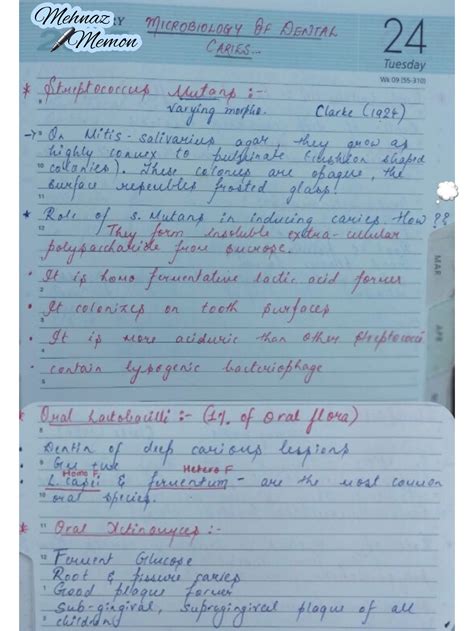 Mehnaz
Memon
RY
MICROBIOLOGY OF DENTAL
CARIES...
24
Tuesday
Wk 09 (55-310)
* Streptococcus Mutans :-
varying morpho. Clarke (1924)
→ On Mitis-salivarius agar, they grow as
highly convex to pulvinate (cushion shaped
colonies). These colonies are opaque, the
surface resembles frosted glass!
* Role of S. Mutans in inducing caries. How??
They form insoluble extra-cellular
polysaccharide from sucrose.
• It is homo fermentative lactic acid former
• It colonizes on tooth surfaces
• It is more aciduric than other streptococci
• contain lysogenic bacteriophage
MAR
APR
* Oral Lactobacilli :- (1% of Oral flora)
• Dentin of deep carious lesions
• Gm +ve
Homo F. Hetero F
• L. casei & fermentum - are the most common
oral species.
* Oral Actinomyces :-
Ferment Glucose
Root & fissure caries
Good plaque former
Sub-gingival, supragingival plaque of all
children